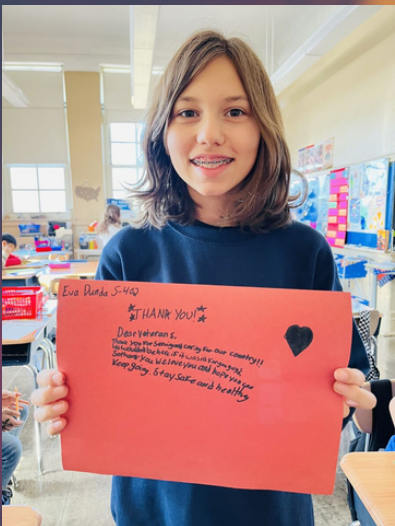 Eva Dunda 5-402
THANK YOU!
Dear Veterans,
Thank you for serving and caring for our country!!
We wouldn't be here if it wasn't for you guys!
So thank you. We love you and hope you can
Keep going. Stay safe and healthy